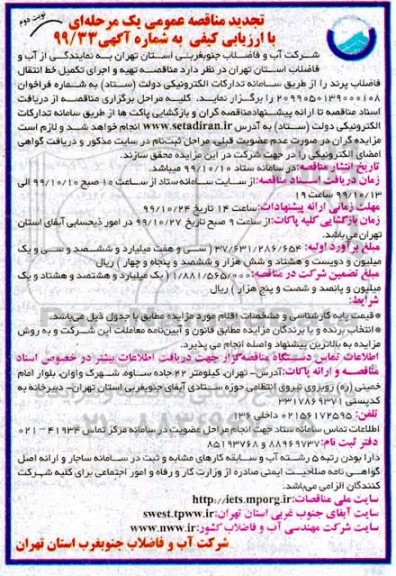 نوبت دوم
تجدید مناقصه عمومی یک مرحله‌ای
با ارزیابی کیفی به شماره آگهی ۹۹/۳۳
شرکت آب و فاضلاب جنوبغربی استان تهران به نمایندگی از آب و
فاضلاب استان تهران در نظر دارد مناقصه تهیه و اجرای تکمیل خط انتقال
فاضلاب پرند را از طریق سامانه تدارکات الکترونیکی دولت (ستاد) به شماره فراخوان
۲۰۹۹۰۵۰۱۳۹۰۰۰۱۰۸ را برگزار نمایند. کلیه مراحل برگزاری مناقصه از دریافت
اسناد مناقصه تا ارائه پیشنهاد مناقصه گران و بازگشایی پاکت ها از طریق سامانه تدارکات
الکترونیکی دولت (ستاد) به آدرس www.setadiran.ir انجام خواهد شد و لازم است
مزایده گران در صورت عدم عضویت قبلی، مراحل ثبت‌نام در سایت مذکور و دریافت گواهی
امضای الکترونیکی را در جهت شرکت در این مزایده محقق سازند.
تاریخ انتشار مناقصه: در سامانه ستاد ۹۹/۱۰/۱۰ میباشد.
زمان دریافت اسناد مناقصه: از سایت سامانه ستاد از ساعت ۱۰ صبح ۹۹/۱۰/۱۰ الی
۹۹/۱۰/۱۳ ساعت ۱۹
مهلت زمانی ارائه پیشنهادات: ساعت ۱۴ تاریخ ۹۹/۱۰/۲۴
زمان بازگشایی کلیه پاکات: از ساعت ۹ صبح تاریخ ۹۹/۱۰/۲۷ در امور ذیحسابی آبفای استان
تهران می‌باشد.
مبلغ برآورد اولیه: ۳۷/۶۳۱/۲۸۶/۶۵۴ (سی و هفت میلیارد و ششصد و سی و یک
میلیون و دویست و هشتاد و شش هزار و ششصد و پنجاه و چهار) ریال
مبلغ تضمین شرکت در مناقصه: ۱/۸۸۱/۵۶۵/۰۰۰ (یک میلیارد و هشتصد و هشتاد و یک
میلیون و پانصد و شصت و پنج هزار) ریال
شرایط:
*قیمت پایه کارشناسی و مشخصات اقلام مورد مزایده مطابق با جدول ذیل می‌باشد.
*انتخاب برنده و یا برندگان مزایده مطابق قانون و آیین‌نامه معاملات این شرکت و به روش
مزایده به بالاترین پیشنهاد واصله انجام می پذیرد.
اطلاعات تماس دستگاه مناقصه‌گزار جهت دریافت اطلاعات بیشتر در خصوص اسناد
مناقصه و ارائه پاکات: آدرس- تهران، کیلومتر ۲۲ جاده ساوه، شهرک واوان، بلوار امام
خمینی (ره) روبروی نیروی انتظامی حوزه ستادی آبفای جنوبغربی استان تهران- دبیرخانه به
کدپستی ۳۳۱۷۸۶۹۳۷۱
تلفن: ۰۲۱۵۶۱۷۲۵۹۵ داخلی ۱۳۶
اطلاعات تماس سامانه ستاد جهت انجام مراحل عضویت در سامانه مرکز تماس ۴۱۹۳۴-۰۲۱
دفتر ثبت نام: ۸۸۹۶۹۷۳۷ و ۸۵۱۹۳۷۶۸
دارا بودن رتبه ۵ رشته آب و سابقه کارهای مشابه و ثبت در سامانه ساجار و ارائه اصل
گواهی نامه صلاحیت ایمنی صادره از وزارت کار و رفاه و امور اجتماعی برای کلیه شرکت
کنندگان الزامی می‌باشد.
سایت ملی مناقصات: http://iets.mporg.ir
سایت آبفای جنوب غربی استان تهران: swest.tpww.ir
سایت شرکت مهندسی آب و فاضلاب کشور: www.nww.ir
شرکت آب و فاضلاب جنوبغرب استان تهران